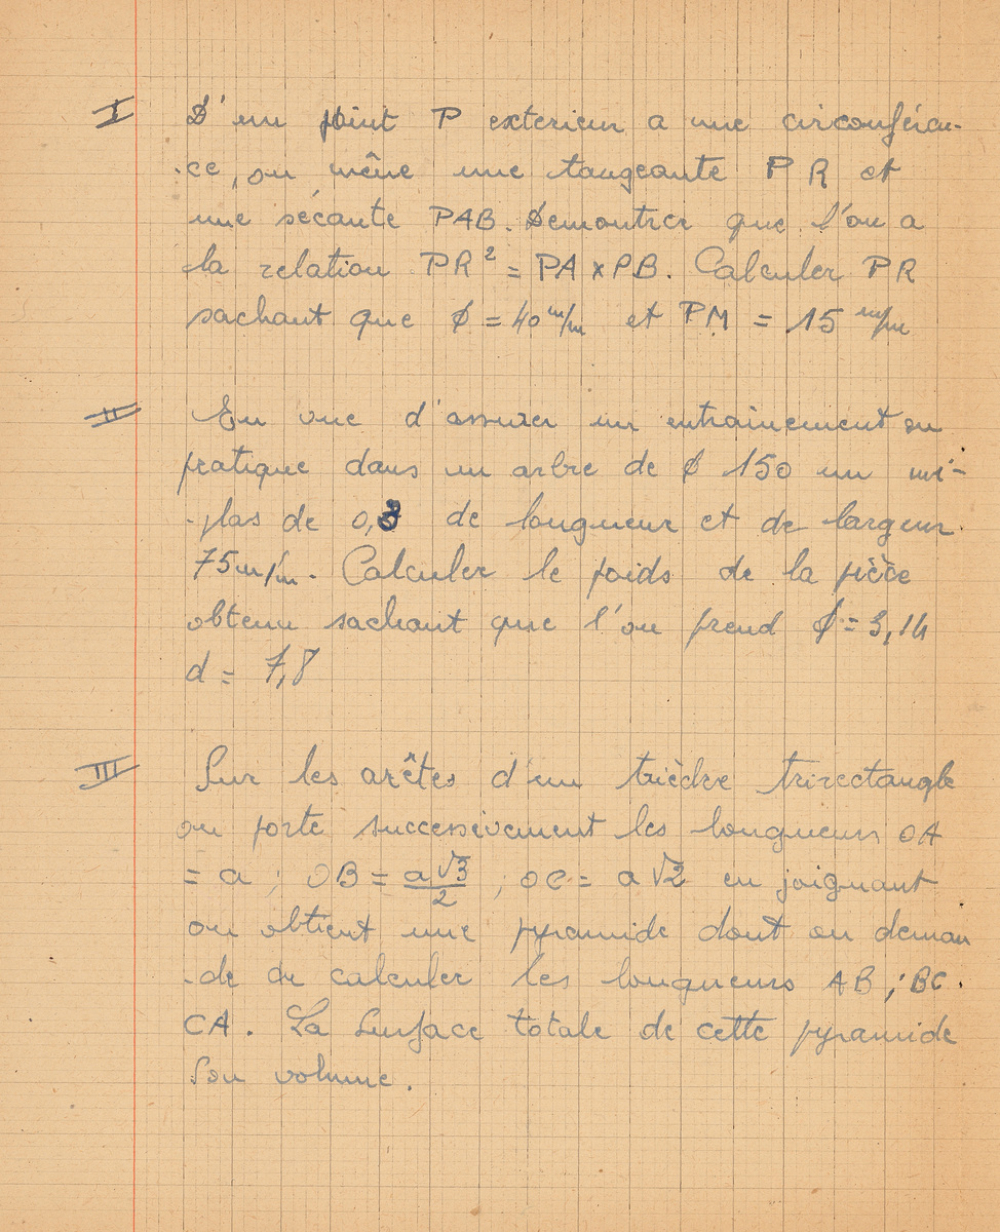 I D'un point P exterieur a une circonféren-
-ce, on mène une tangeante PR et
une sécante PAB. Demontrer que l'on a
la relation PR² = PA x PB. Calculer PR
sachant que ϕ = 40 m/m et PM = 15 m/m
II En vue d'assurer un entrainement on
pratique dans un arbre de ϕ 150 un mé-
-plas de 0,3 de longueur et de largeur
75 m/m. Calculer le poids de la pièce
obtenu sachant que l'on prend ϕ = 3,14
d = 7,8
III Sur les arêtes d'un trièdre trirectangle
on porte successivement les longueurs OA
= a ; OB = a√3/2 ; OC = a√2 en joignant
on obtient une pyramide dont on deman
-de de calculer les longueurs AB ; BC.
CA. La Surface totale de cette pyramide
Son volume.